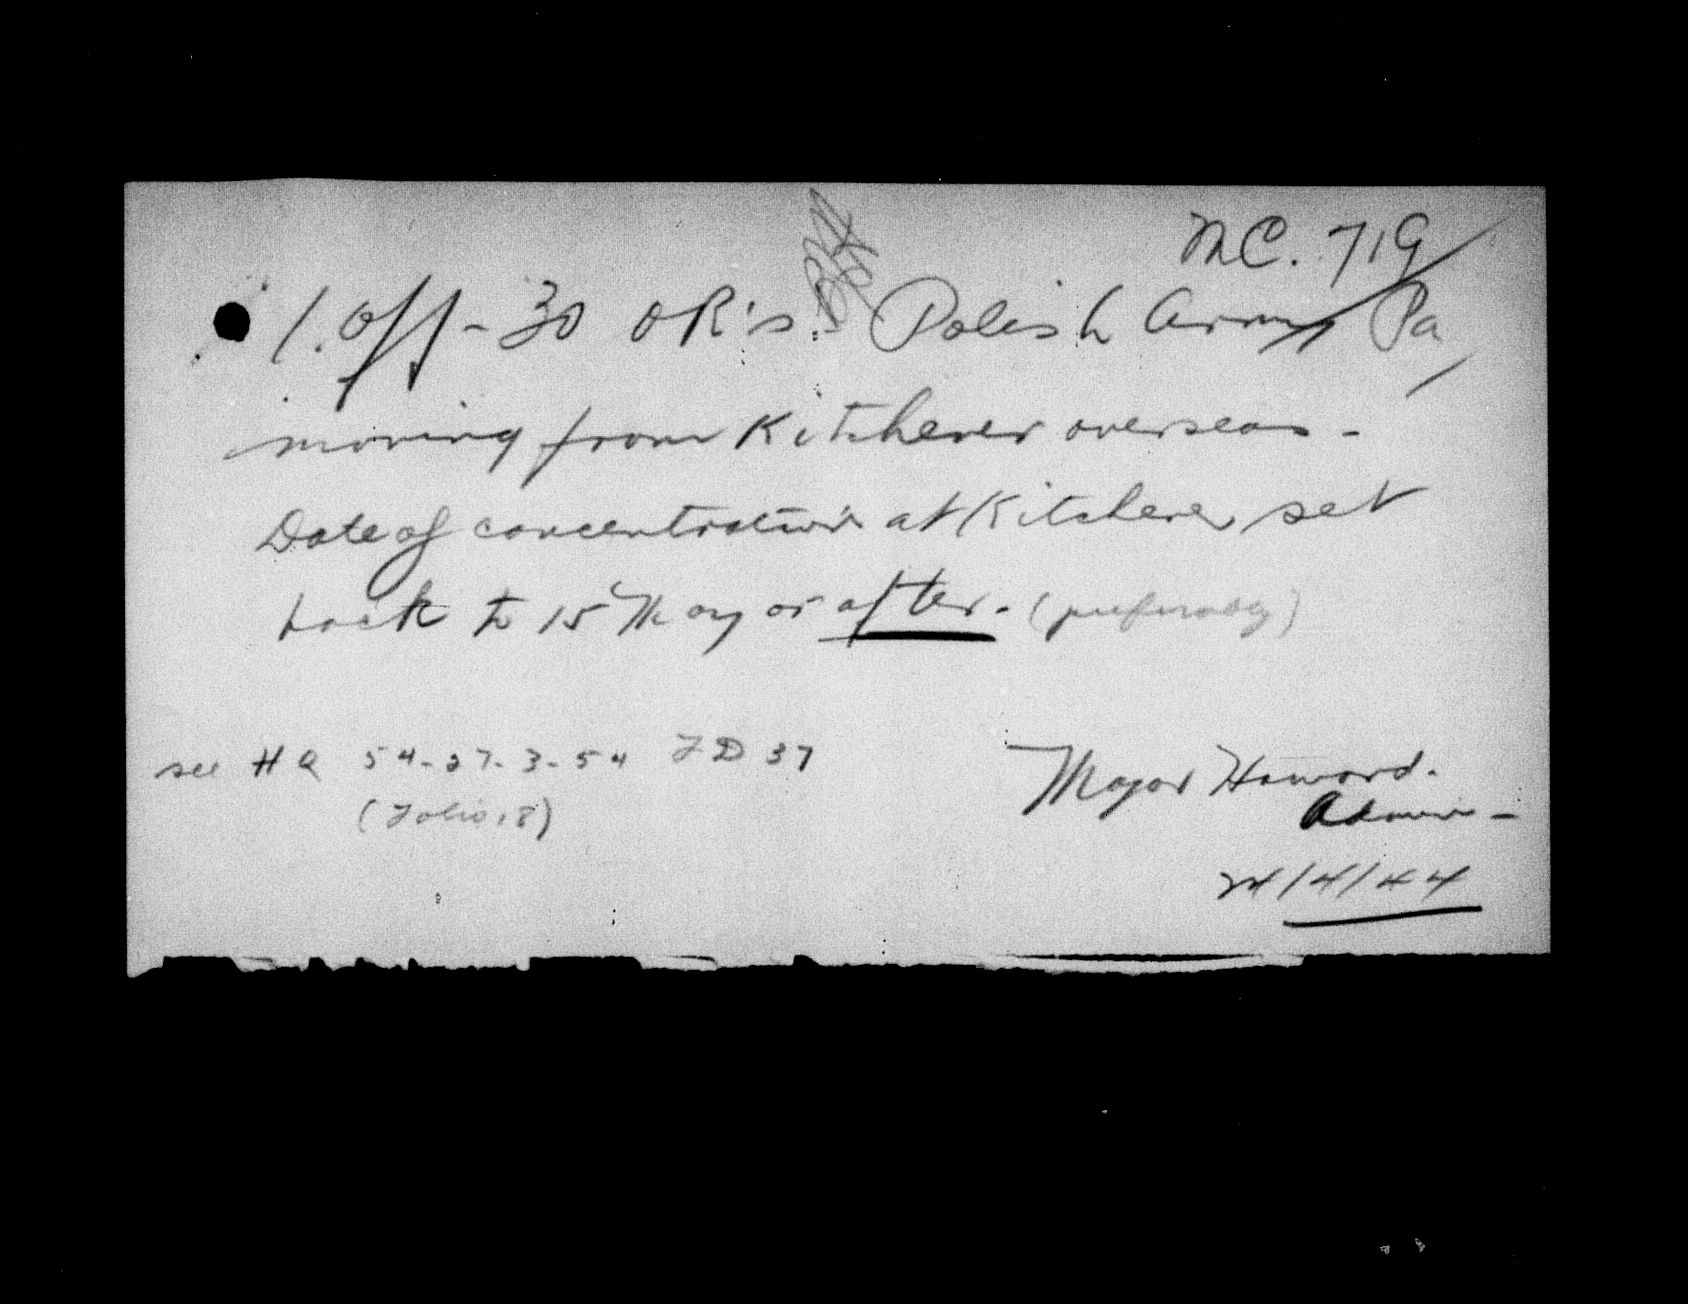 MC. 719
1. Off - 30 OR's. Polish Army Pa
moving from Kitchener overseas -
Date of concentration at Kitchener set
back to 15 May or after. (preferably)
see HQ 54-27-3-54 FD 37
(Folio 18)
Major Howard.
Admin -
24/4/44